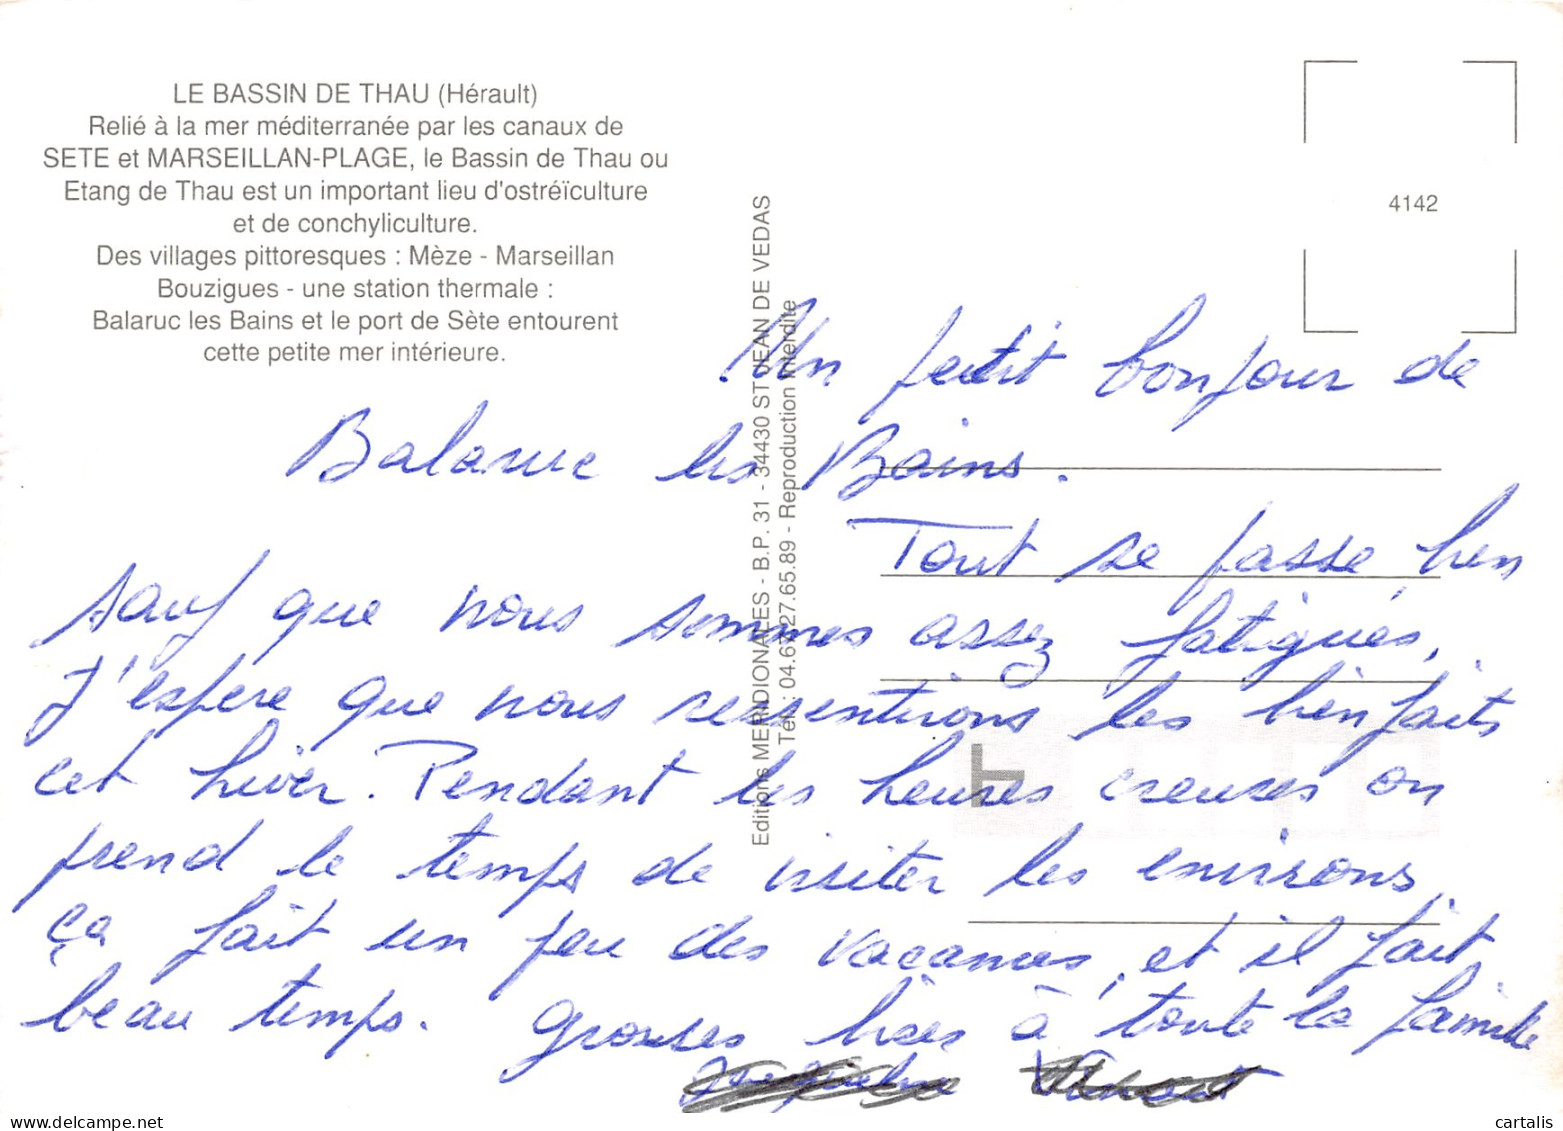 LE BASSIN DE THAU (Hérault)
Relié à la mer méditerranée par les canaux de
SETE et MARSEILLAN-PLAGE, le Bassin de Thau ou
Etang de Thau est un important lieu d'ostréïculture
et de conchyliculture.
Des villages pittoresques : Mèze - Marseillan
Bouzigues - une station thermale :
Balaruc les Bains et le port de Sète entourent
cette petite mer intérieure.
Editions MERIDIONALES - B.P. 31 - 34430 ST JEAN DE VEDAS
Tél. : 04.67.27.65.89 - Reproduction Interdite
4142
Un petit bonjour de
Balaruc les Bains.
Tout se passe bien
sauf que nous sommes assez fatigués,
J'espère que nous ressentirons les bienfaits
cet hiver. Pendant les heures creuses on
prend le temps de visiter les environs,
ça fait un peu des vacances, et il fait
beau temps. Grosses bises à toute la famille
cartalis